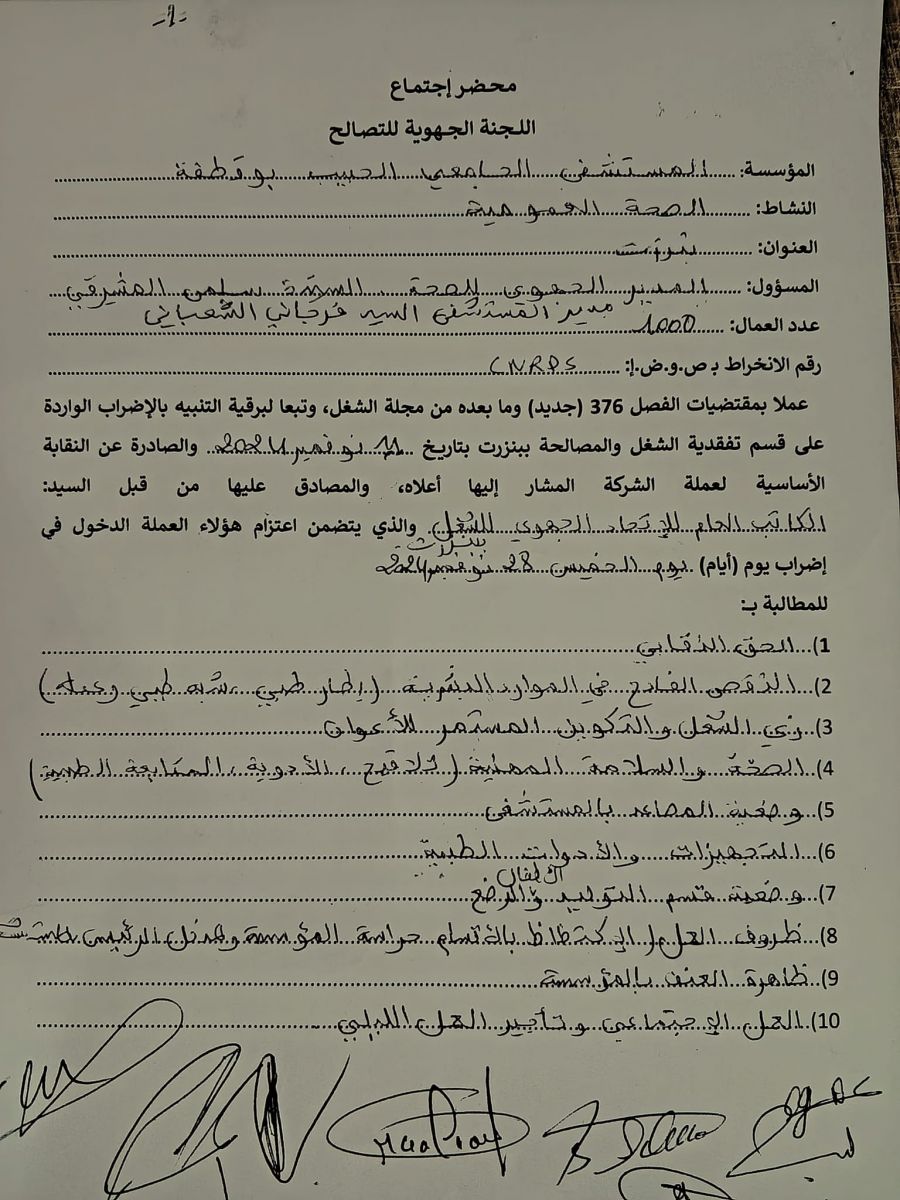 -1-
محضر إجتماع
اللجنة الجهوية للتصالح
المؤسسة: المستشفى الجامعي الحبيب بوقطفة
النشاط: الصحة العمومية
العنوان: بنزرت
المسؤول: المدير الجهوي للصحة السيدة سلمى المشرقي
مدير المستشفى السيد فرجاني الشعباني
عدد العمال: 1000
رقم الانخراط بـ ص.و.ض.إ: CNRPS
عملا بمقتضيات الفصل 376 (جديد) وما بعده من مجلة الشغل، وتبعا لبرقية التنبيه بالإضراب الواردة
على قسم تفقدية الشغل والمصالحة ببنزرت بتاريخ 11 نوفمبر 2024 والصادرة عن النقابة
الأساسية لعملة الشركة المشار إليها أعلاه، والمصادق عليها من قبل السيد:
الكاتب العام للإتحاد الجهوي للشغل والذي يتضمن اعتزام هؤلاء العملة الدخول في
ببنزرت
إضراب يوم (أيام) يوم الخميس 28 نوفمبر 2024
للمطالبة بـ:
1) الحق النقابي
2) النقص الفادح في الموارد البشرية (إطار طبي، شبه طبي وعملة)
3) زي الشغل والتكوين المستمر للأعوان
4) الصحة والسلامة المهنية (تلاقيح، الأدوية، المتابعة الطبية)
5) وضعية المصاعد بالمستشفى
6) التجهيزات والأدوات الطبية
7) وضعية قسم التوليد والرضع
الأطفال
8) ظروف العمل (الإكتظاظ بالأقسام حراسة المؤسسة ومدخل الرئيسي
9) ظاهرة العنف بالمؤسسة
10) العمل الإجتماعي وتأجير العمل الليلي